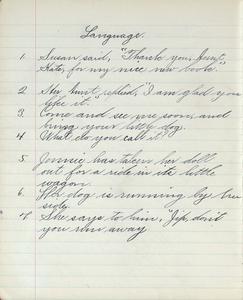 Language.
1. Susan said, "Thank you, Aunt
Kate, for my nice new book."
2. Her Aunt, replied, "I am glad you
like it."
3. Come and see me soon, and
bring your little dog.
4. What do you call it?
5. Jennie has taken her doll
out for a ride in its little
wagon.
6. Her dog is running by her
side.
7. She says to him, "Jip, don't
you run away